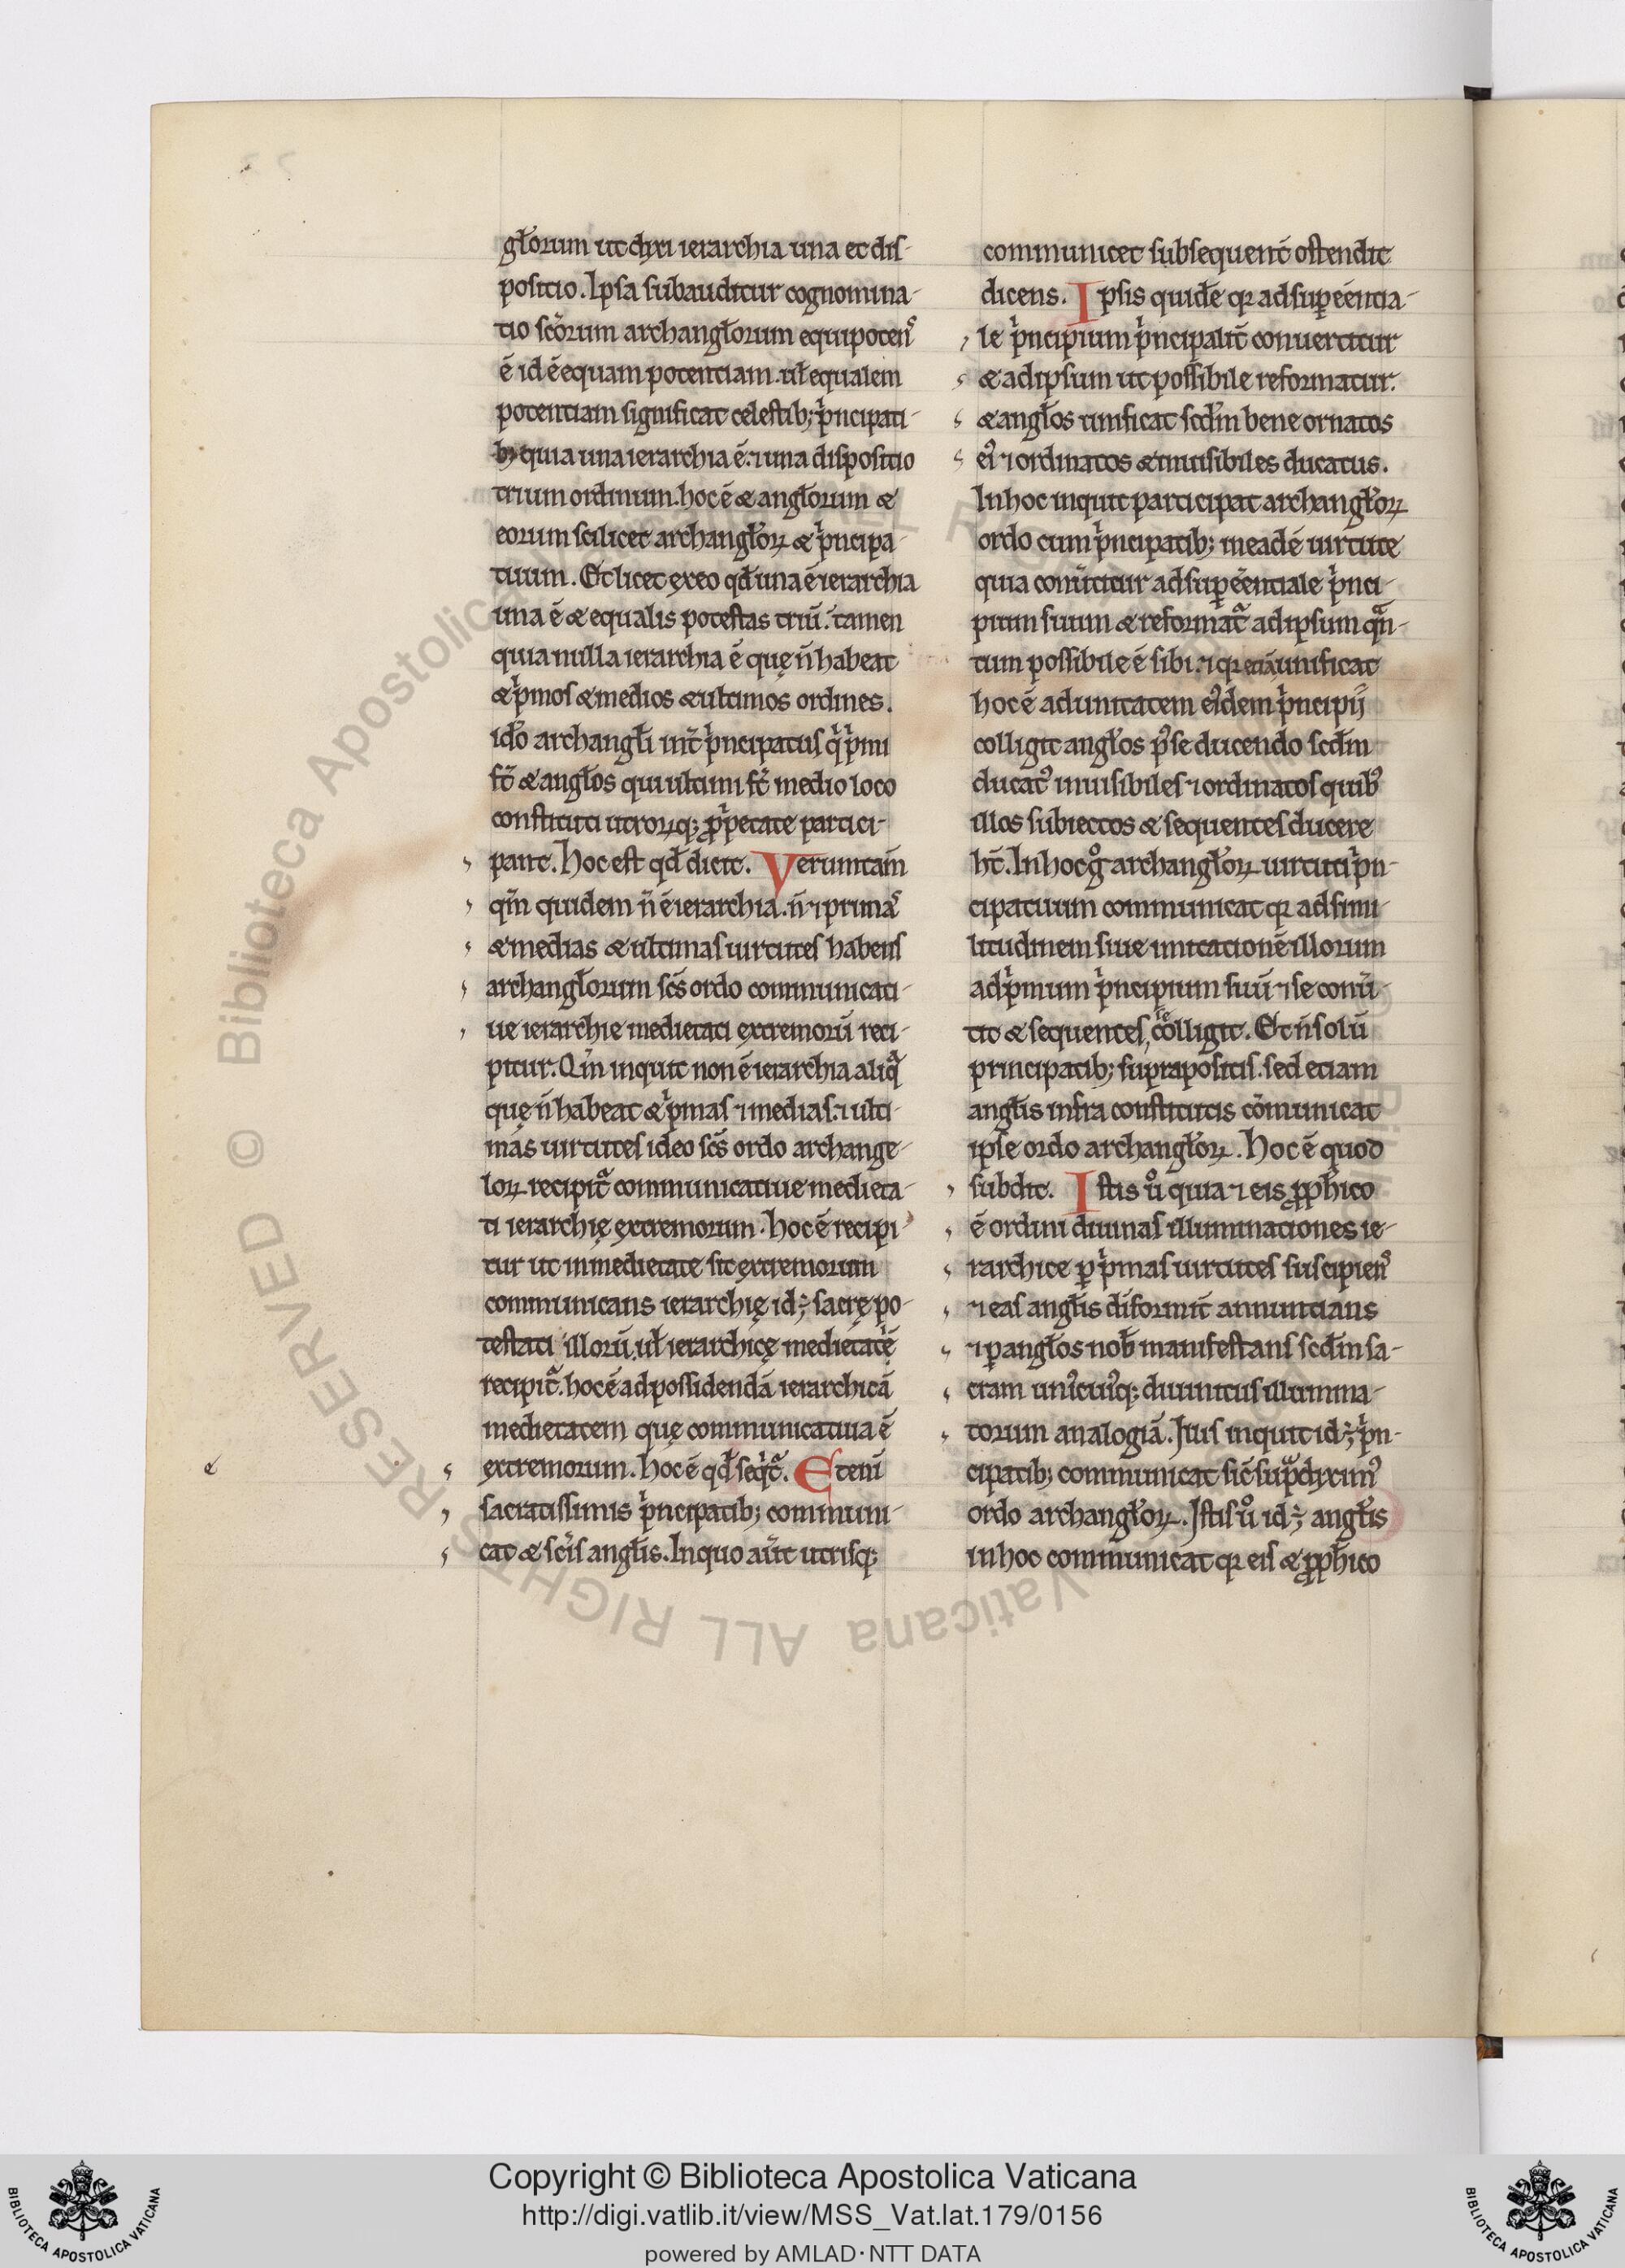 głorum ut dixi ierarchia una et dis-
positio. Ipsa subauditur cognomina-
tio sc̄orum archangłorum equipotens
ē id ē equam potentiam. uł equalem
potentiam significat celestib; p̍ncipati-
b; quia una ierarchia ē. ⁊ una dispositio
trium ordinum. hoc ē & angłorum &
eorum scilicet archangłoꝝ & p̍ncipa-
tuum. Et licet ex eo qđ una ē ierarchia
una ē & equalis potestas triū. tamen
quia nulla ierarchia ē quę n̄ habeat
& p̍mos & medios & ultimos ordines.
iđo archangłi int̄ p̍ncipatus q̍ p̍mi
st̄ & angłos qui ultimi st̄ medio loco
constituti utroꝝq; ꝓp̍etate partici-
pant. Hoc est qđ dicit. Veruntam̄
qm̄ quidem n̄ ē ierarchia. n̄ ⁊ primas
& medias & ultimas uirtutes habens
archangłorum sc̄s ordo communicati-
ue ierarchie medietati extremorū reci-
pitur. Qm̄ inquit non ē ierarchia aliqᵃ
quę n̄ habeat & p̍mas ⁊ medias. ⁊ ulti-
mas uirtutes ideo sc̄s ordo archange-
loꝝ recipit̄ communicatiue medieta-
ti ierarchię extremorum. hoc ē recipi-
tur ut in medietate sit extremorum
communicans ierarchię id; sacrę po-
testati illorū. uł ierarchicę medietatē
recipit̄. hoc ē ad possidendā ierarchicā
medietatem quę communicatiua ē
extremorum. hoc ē qđ seq̍t̄. Etenī
sacratissimis p̍ncipatib; communi-
cat & sc̄is angłis. In quo aūt utrisq;
communicet subsequent̄ ostendit
dicens. Ipsis quidē qꝛ ad suꝑeēntia-
le p̍ncipium p̍ncipalit̄ conuertitur
& ad ipsum ut possibile reformatur.
& angłos unificat scđm bene ornatos
ei᾽ ⁊ ordinatos & inuisibiles ducatus.
In hoc inquit participat archangłoꝝ
ordo cum p̍ncipatib; in eadē uirtute
quia conūtitur ad suꝑeēntiale p̍nci-
pium suum & reformat̄ ad ipsum qᵃn-
tum possibile ē sibi. ⁊ qꝛ etiā unificat
hoc ē ad unitatem ei᾽dem p̍ncipij
colligit angłos ꝑ se ducendo scđm
ducat᾽ inuisibiles ⁊ ordinatos quib᾽
illos subiectos & sequentes ducere
ht̄. In hoc gͦ archangłoꝝ uirtuti p̍n-
cipatuum communicat qꝛ ad simi-
litudinem siue imitationē illorum
ad p̍mum p̍ncipium suū ⁊ se conū-
tit & sequentes, se colligit. Et n̄ solū
principatib; suprapositis. sed etiam
angłis infra constitutis cōmunicat
ipse ordo archangłoꝝ. Hoc ē quod
subdit. Istis uͦ quia ⁊ eis ꝓph̄ico
ē ordini diuinas illuminationes ie-
rarchice ꝑ p̍mas uirtutes suscipiens
⁊ eas angłis dīformit̄ annuntians
⁊ ꝑ angłos nob̄ manifestans scđm sa-
cram uni᾽cui᾽q; diuinitus illumina-
torum analogiā. Illis inquit id; p̍n-
cipatib; communicat sic̄ sup̄diximus
ordo archangłoꝝ. Istis uͦ id; angłis
in hoc communicat qꝛ eis & ꝓph̄ico
Copyright © Biblioteca Apostolica Vaticana
http://digi.vatlib.it/view/MSS_Vat.lat.179/0156
powered by AMLAD·NTT DATA
BIBLIOTECA APOSTOLICA VATICANA
BIBLIOTECA APOSTOLICA VATICANA